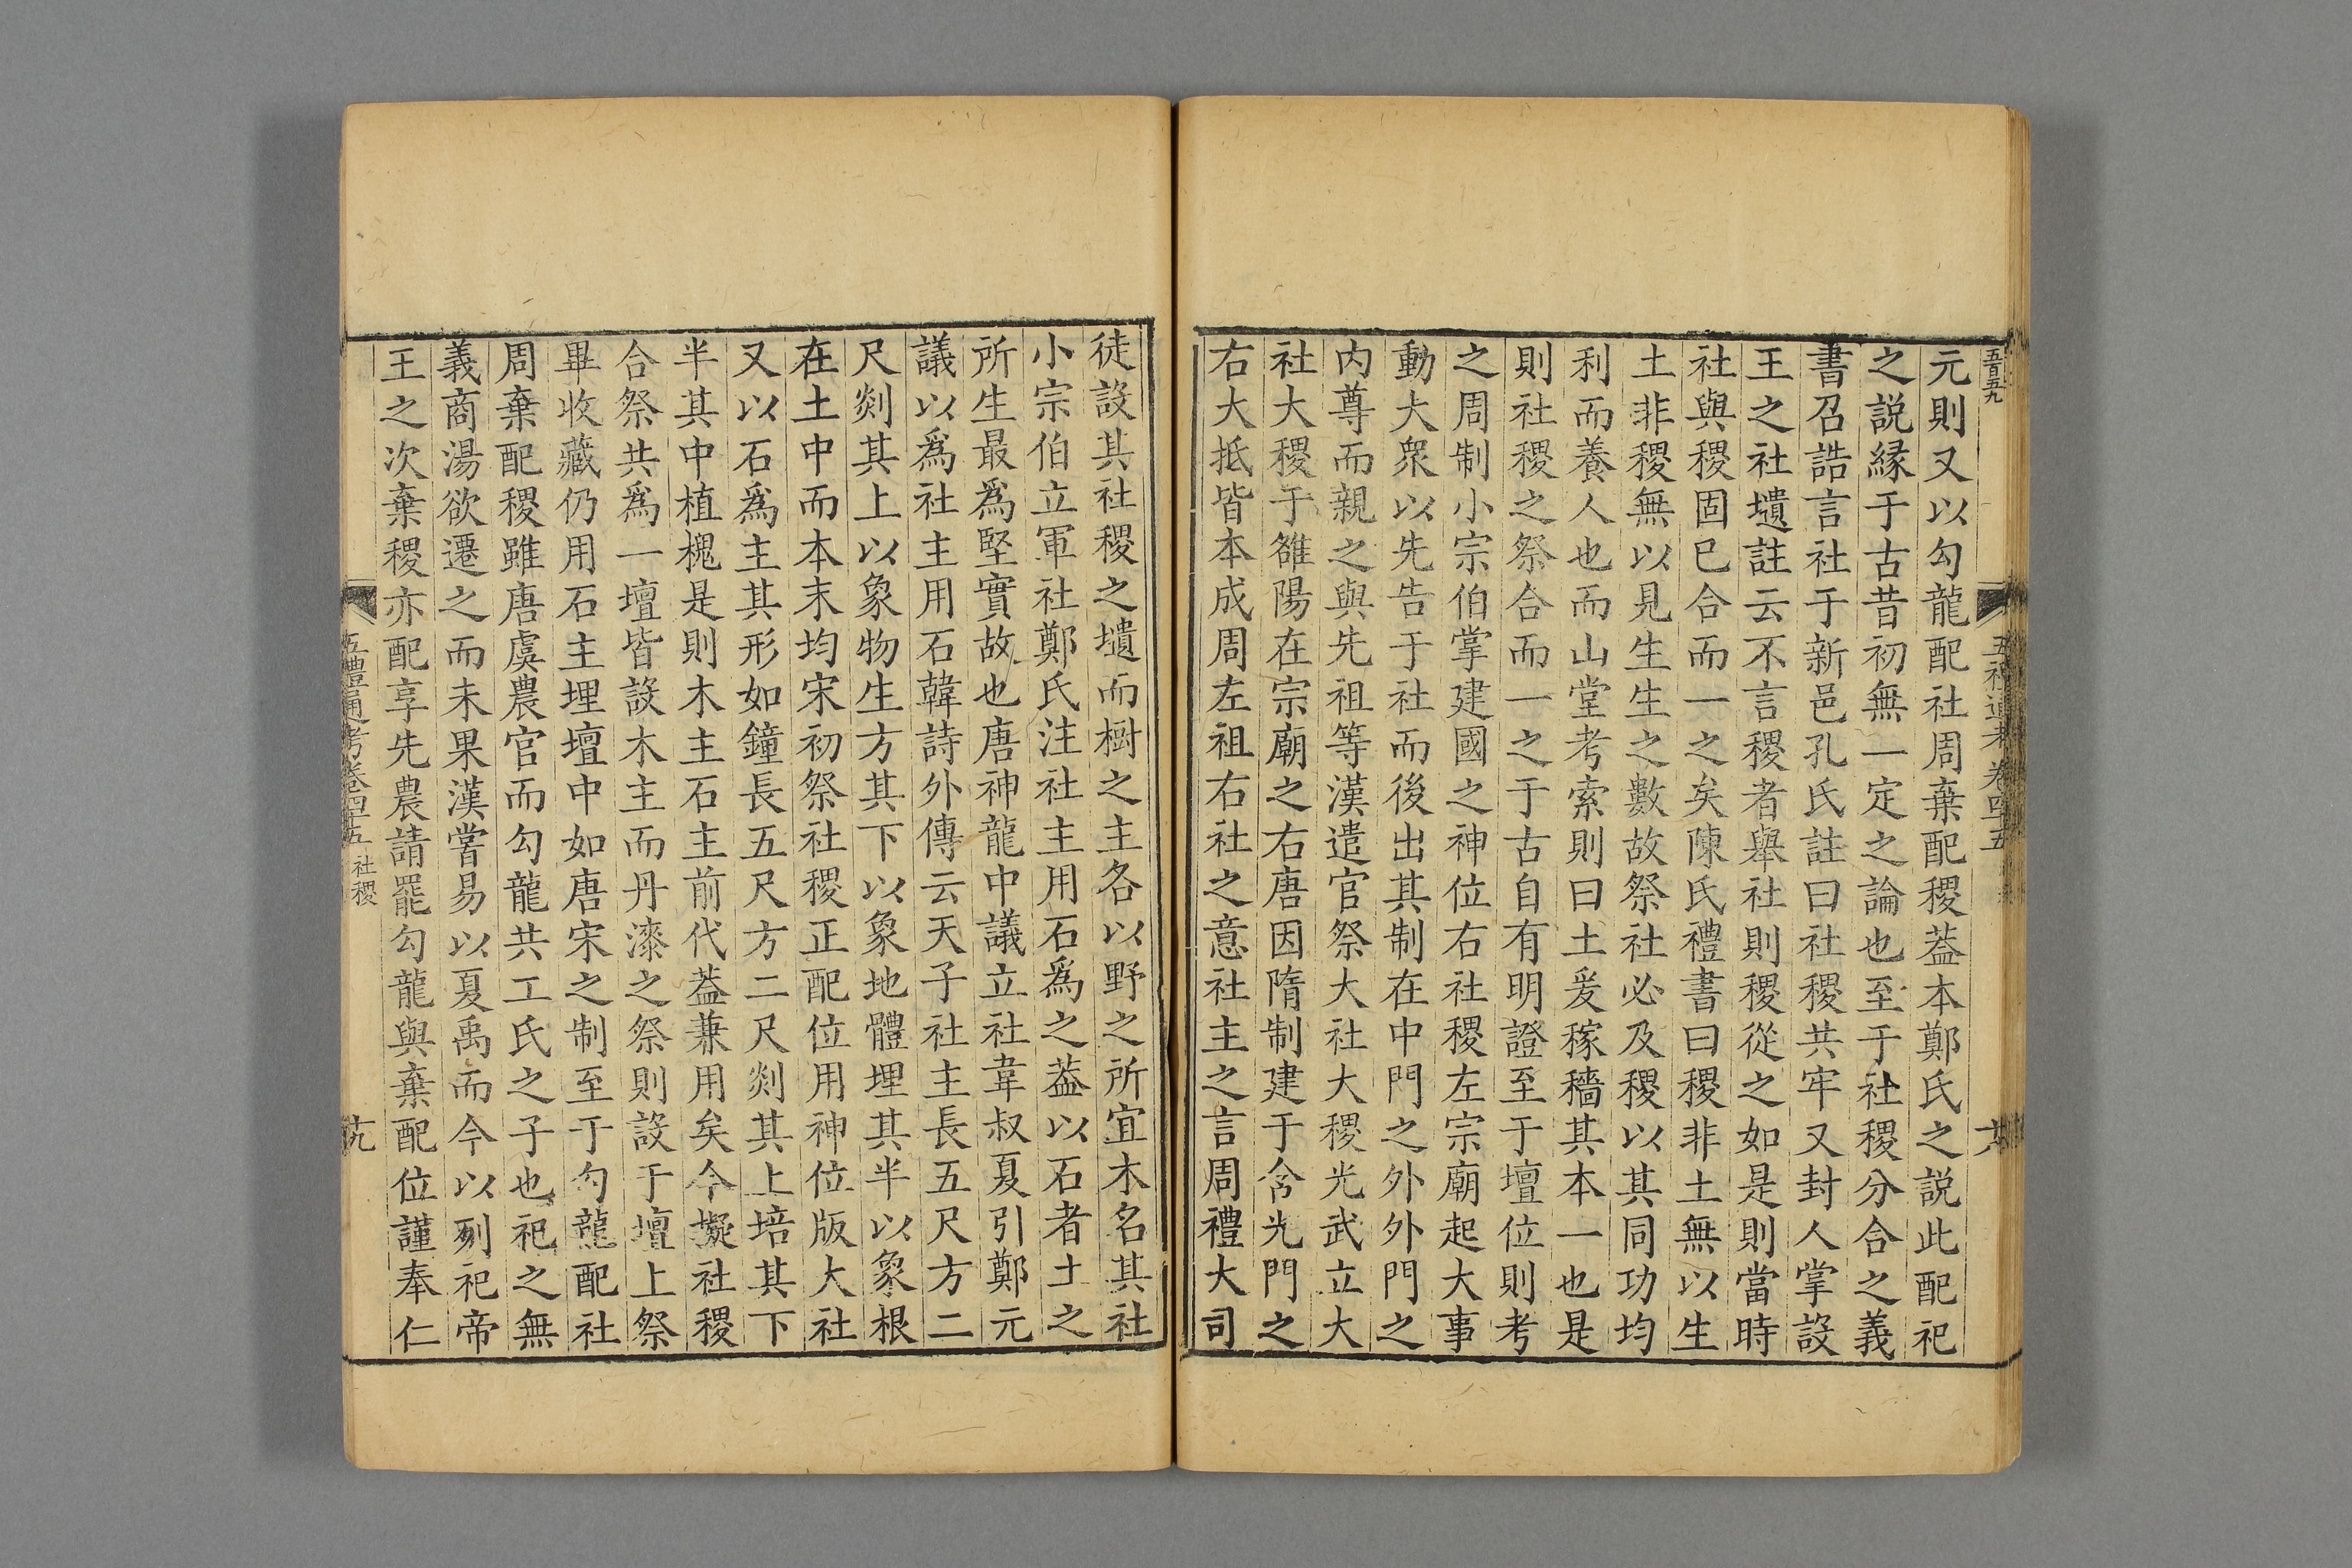 元則又以勾龍配社周棄配稷葢本鄭氏之説此配祀
之説縁于古昔初無一定之論也至于社稷分合之義
書召誥言社于新邑孔氏註曰社稷共牢又封人掌設
王之社壝註云不言稷者舉社則稷從之如是則當時
社與稷固巳合而一之矣陳氏禮書曰稷非土無以生
土非稷無以見生生之數故祭社必及稷以其同功均
利而養人也而山堂考索則曰土爰稼穡其本一也是
則社稷之祭合而一之于古自有明證至于壇位則考
之周制小宗伯掌建國之神位右社稷左宗廟起大事
動大衆以先告于社而後出其制在中門之外外門之
内尊而親之與先祖等漢遣官祭大社大稷光武立大
社大稷于雒陽在宗廟之右唐因隋制建于含光門之
右大抵皆本成周左祖右社之意社主之言周禮大司
徒設其社稷之壝而樹之主各以野之所宜木名其社
小宗伯立軍社鄭氏注社主用石爲之葢以石者土之
所生最爲堅實故也唐神龍中議立社韋叔夏引鄭元
議以爲社主用石韓詩外傳云天子社主長五尺方二
尺剡其上以象物生方其下以象地體埋其半以象根
在土中而本末均宋初祭社稷正配位用神位版大社
又以石爲主其形如鐘長五尺方二尺剡其上培其下
半其中植槐是則木主石主前代葢兼用矣今擬社稷
合祭共爲一壇皆設木主而丹漆之祭則設于壇上祭
畢收藏仍用石主埋壇中如唐宋之制至于勾龍配社
周棄配稷雖唐虞農官而勾龍共工氏之子也祀之無
義商湯欲遷之而未果漢嘗易以夏禹而今以列祀帝
王之次棄稷亦配享先農請罷勾龍與棄配位謹奉仁
五禮通考卷四十五 社稷 十九